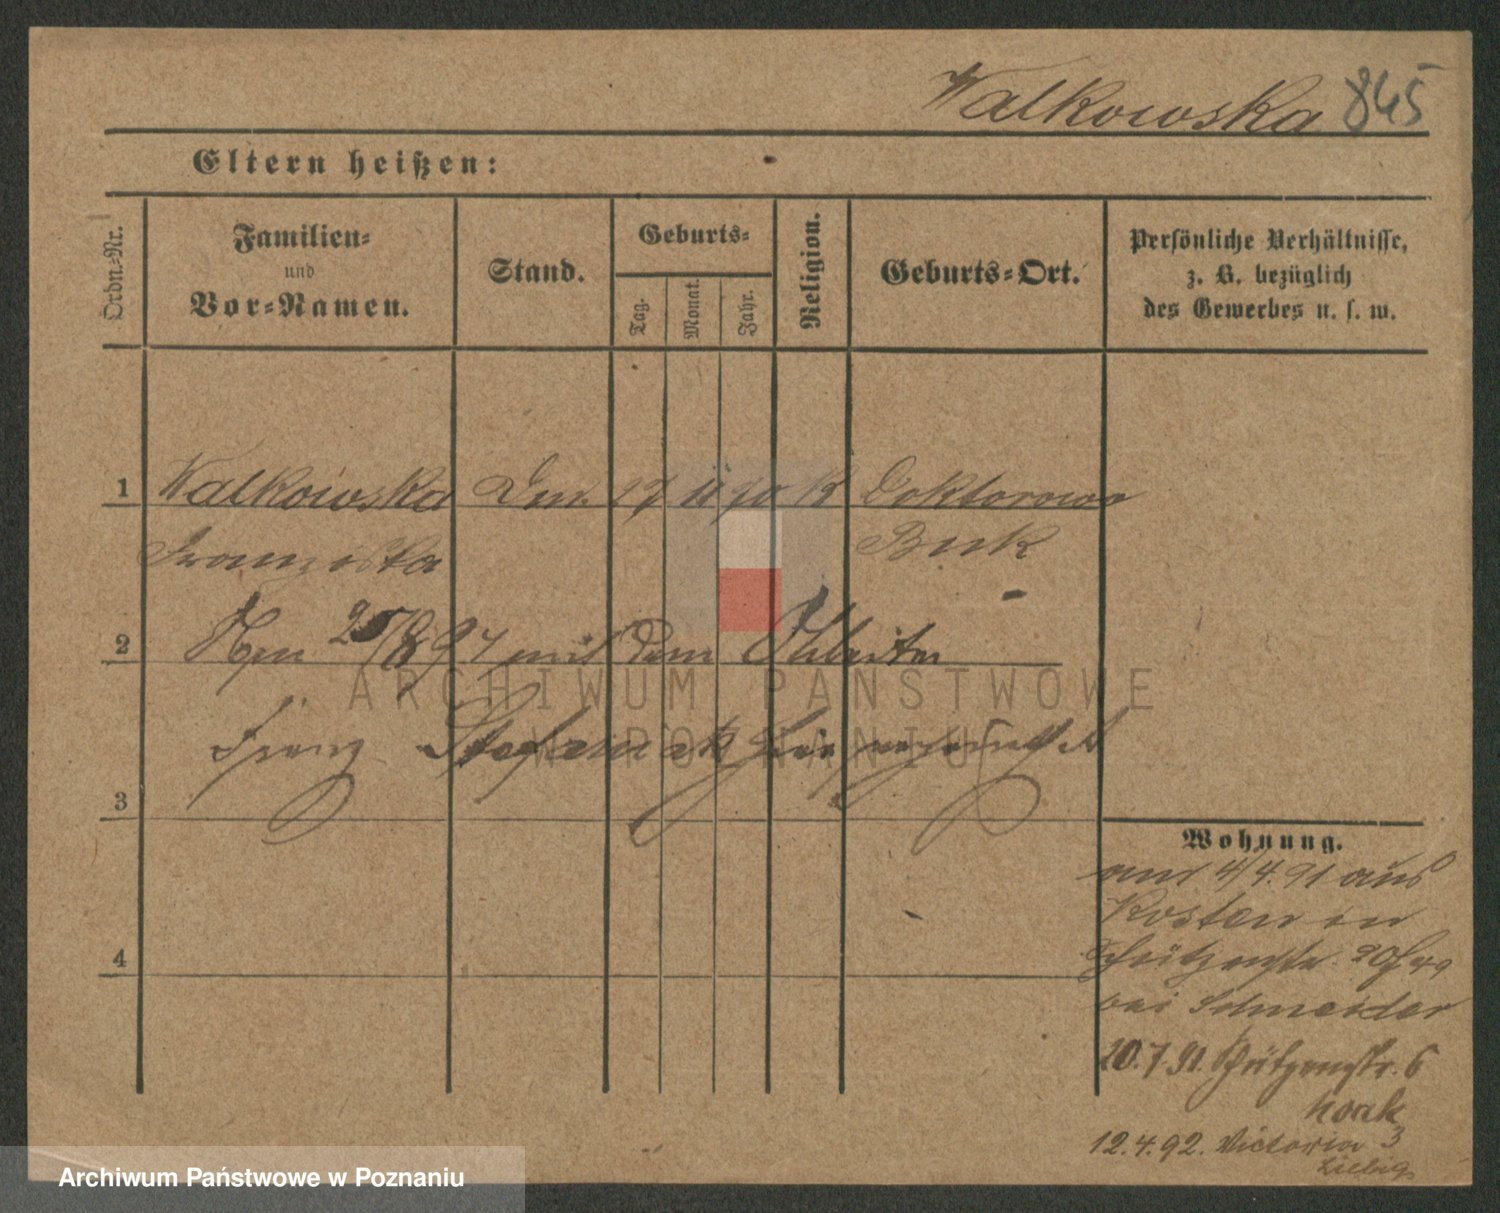 Walkowska 845
Eltern heißen:
Ordn.-Nr.
Familien-
und
Vor-Namen.
Stand.
Geburts-
Tag.
Monat.
Jahr.
Religion.
Geburts-Ort.
Persönliche Verhältnisse,
z. B. bezüglich
des Gewerbes u. s. w.
1 Walkowska 17 11 70 K Doktorowo
Franziska Buk
2 25/8 97 mit dem Arbeiter
Franz
3
Wohnung.
am 4/4. 91 aus
Kosten in
4
bei Schneider
20.7.91. Schützenstr. 6
12.4.92. Victoria 3
ARCHIWUM PAŃSTWOWE
W POZNANIU
Archiwum Państwowe w Poznaniu